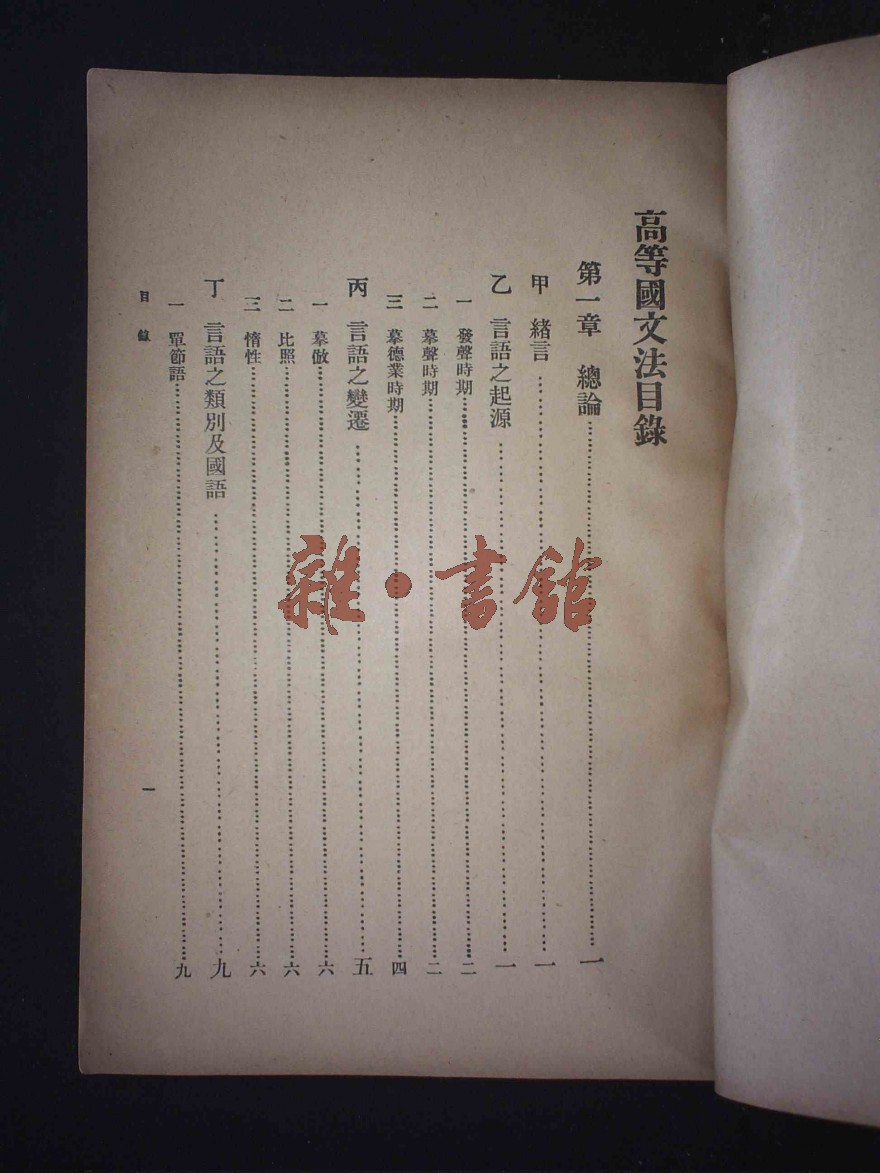 高等國文法目錄
第一章　總論……一
甲　緒言……一
乙　言語之起源……一
一　發聲時期……二
二　摹聲時期……二
三　摹德業時期……四
丙　言語之變遷……五
一　摹倣……六
二　比照……六
三　惰性……六
丁　言語之類別及國語……九
一　單節語……九
目錄　一
雜·書館